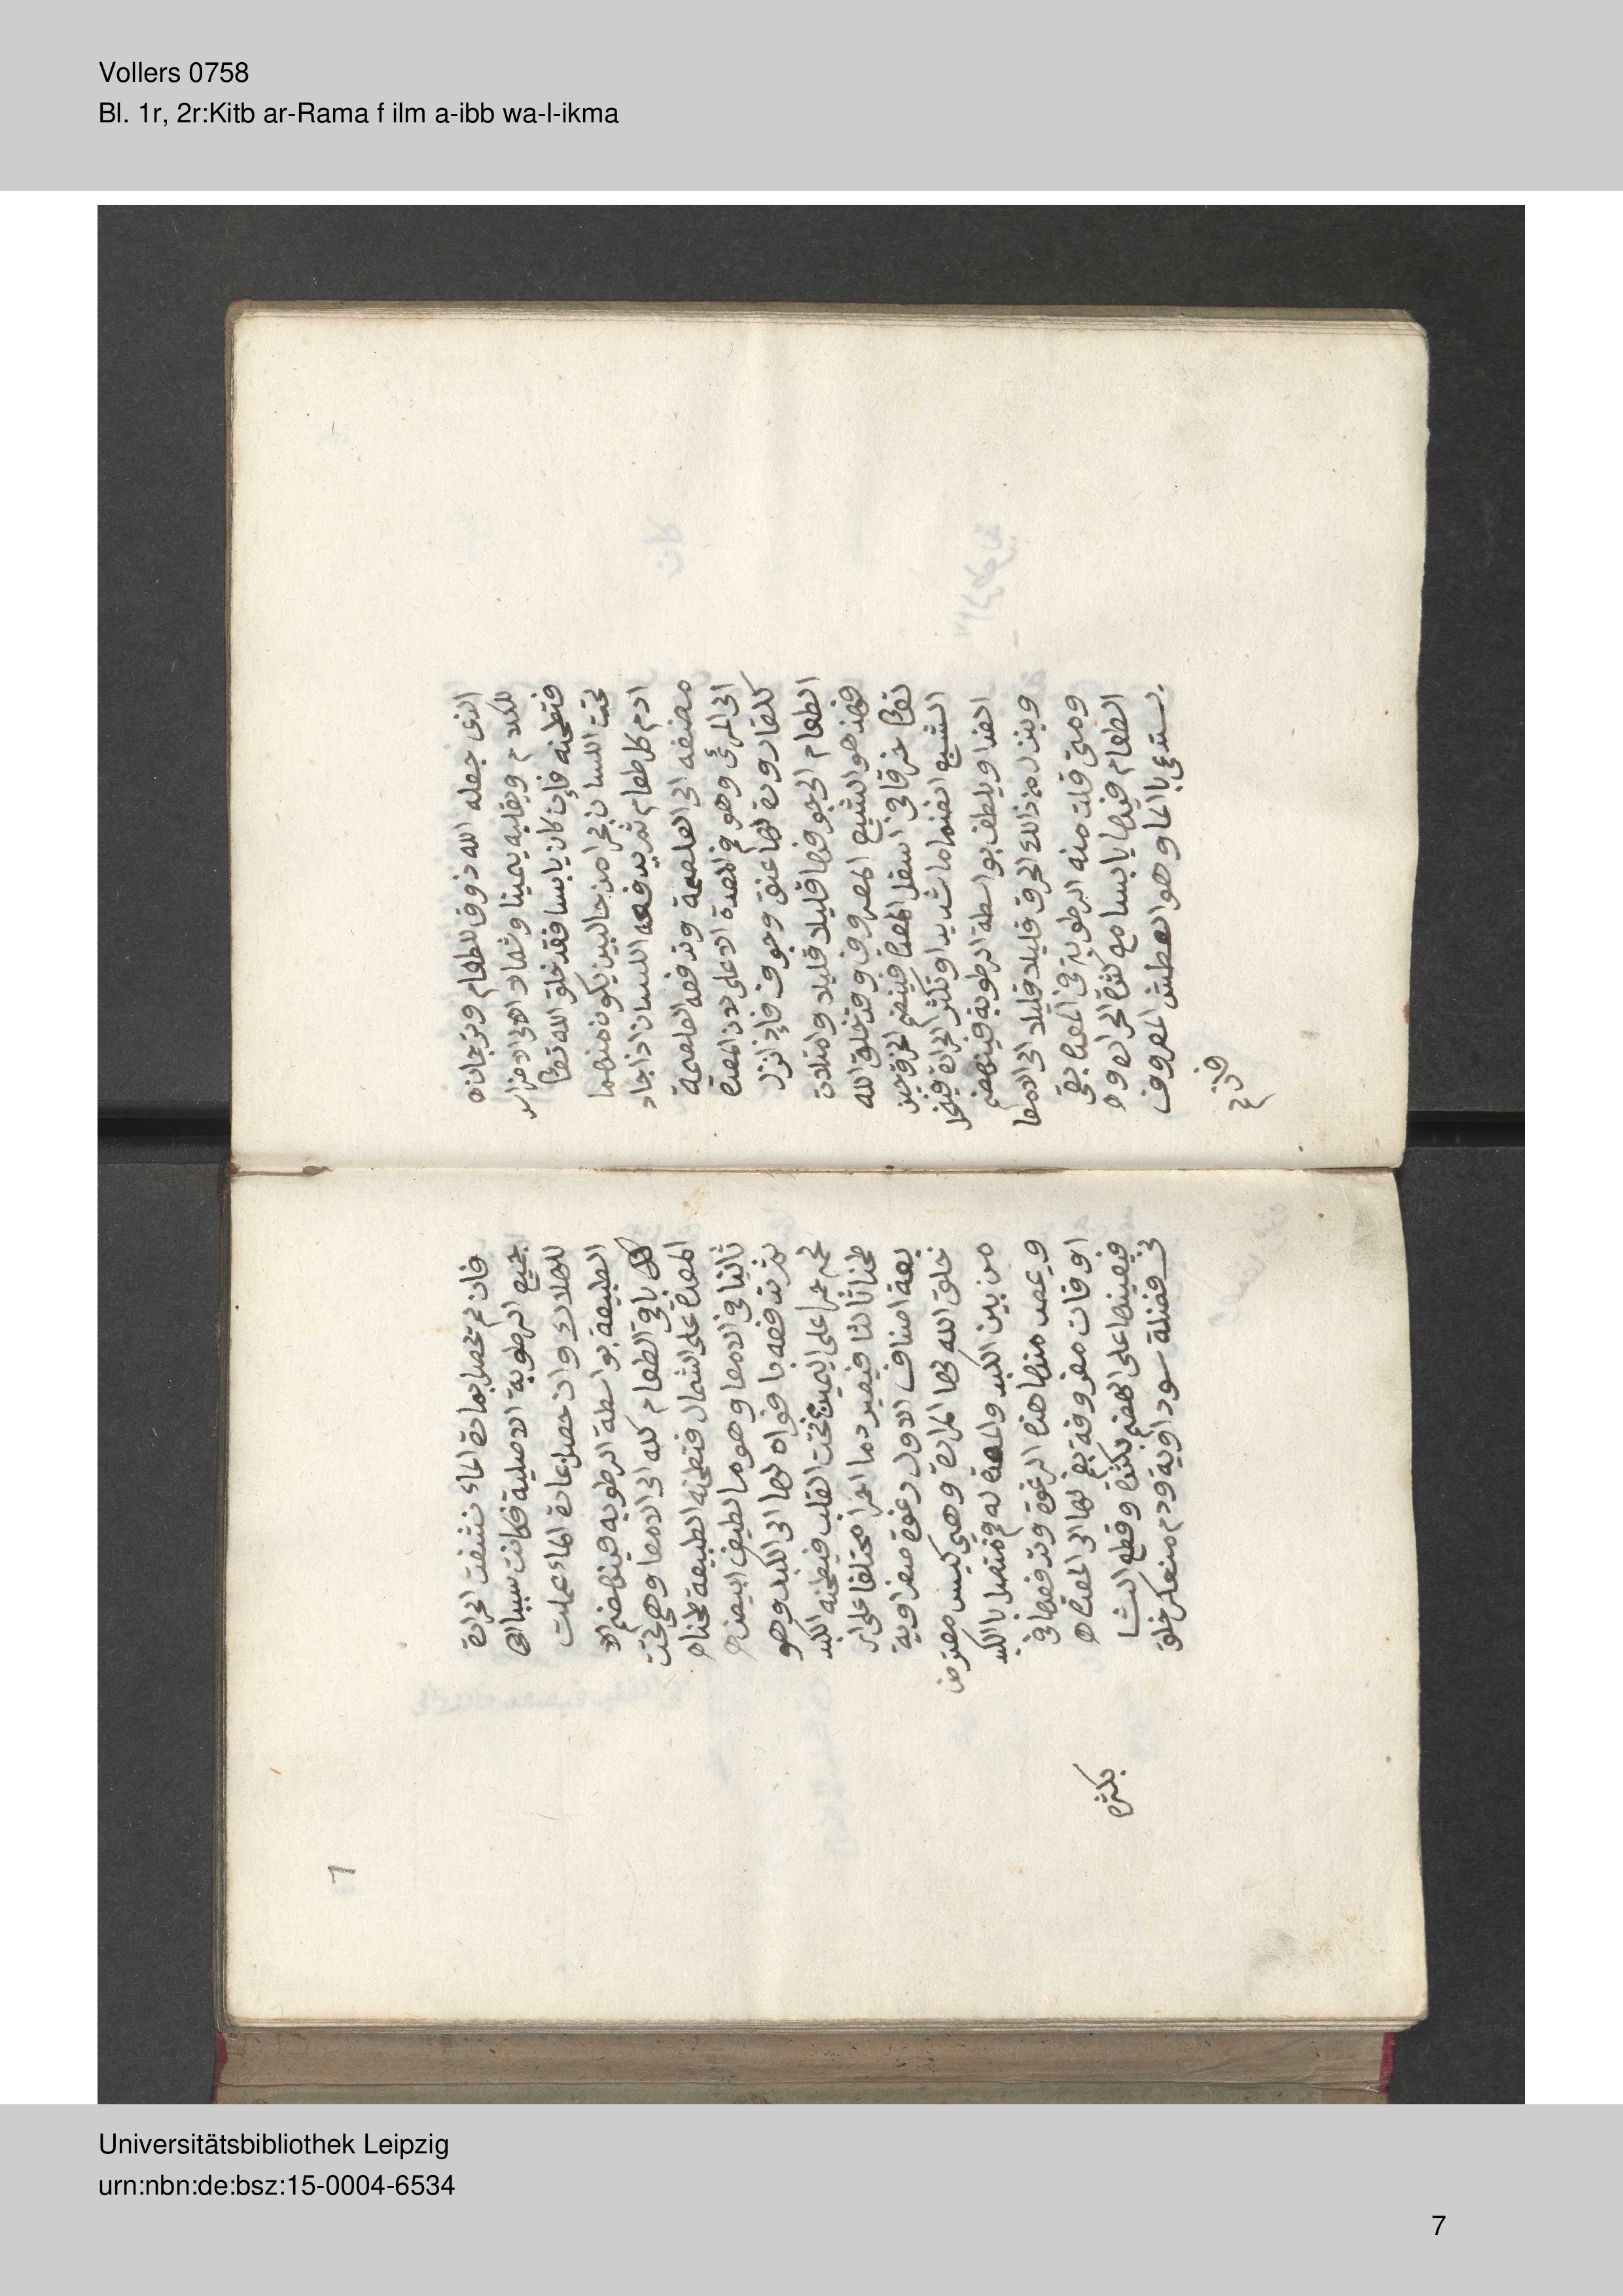 Vollers 0758
Bl. 1r, 2r:Kitb ar-Rama f ilm a-ibb wa-l-ikma
الذى جعله الله ذوق للطعام وترجمانه
للكلام ويقلبه يمينا وشمالا الى الاضراس
فتطحنه فان كان يابسا فقد خلق الله تعالى
تحت اللسان بحرا من جالبين يكون منهما
ادم كل طعام ثم يدفعه اللسان اذا جاد
مضغه الى الغلصمة وتدفعه الغلصمة
الى المرئ وهو فم المعدة الاعلى لان المعدة
كالقارورة لها عنق وجوف فاذا نزل
الطعام الى جوفها قليلا قليلا وامتلات
فهذا هو الشبع المعروف وقد خلق الله
تعالى خرقا فى اسفل المعدة فينضم الخرق حين
الشبع انضماما شديدا وتكثر الحرارة فينحل
الغذا ويلطف بواسطة الرطوبة فينهضم
وينزل من ذالك الخرق قليلا قليلا الى الامعا
ومتى قلت منه الرطوبة فى المعدة بقى
الطعام فيها يابسا مع كثرة الحرارة و
يستدعى بالما وهو العطش المعروف
فان لم تحصل بمادة الماء نشفت الحرارة
جميع الرطوبة الاصلية فكانت سببا الى
للهلاك وان حصل عادة الماء عملت
الطبيعة بواسطة الرطوبه فينهضم الا
كل باقى الطعام كله الى الامعا وهى تحت
المعدة على الشمال فتطحنه الطبيعة طحناه
ثانيا فى الامعا وهو ما لطيف ابيض
ثم تدفعه بافواه لها الى الكبد وهو
لحم احمر على اليمين تحت القلب فيطحنه الكبد
طحنا ثالثا فيصير دما احمرا مختلفا على ار
بعة اصناف الاول رغوة صفراوية
خلق الله لها المرارة وهى كيس معترض
من بين الكبد والمعدة له فم متصل بالكبد
و يمص منها هذه الرغوة وتدفعها فى
اوقات معروفة بفم لها الى المعدة
فيعينها على الهضم بكثرة وقطع النشا
فى فضلة سوداوية ودم منعكر خلق
بكثرة
Universitätsbibliothek Leipzig
urn:nbn:de:bsz:15-0004-6534
7